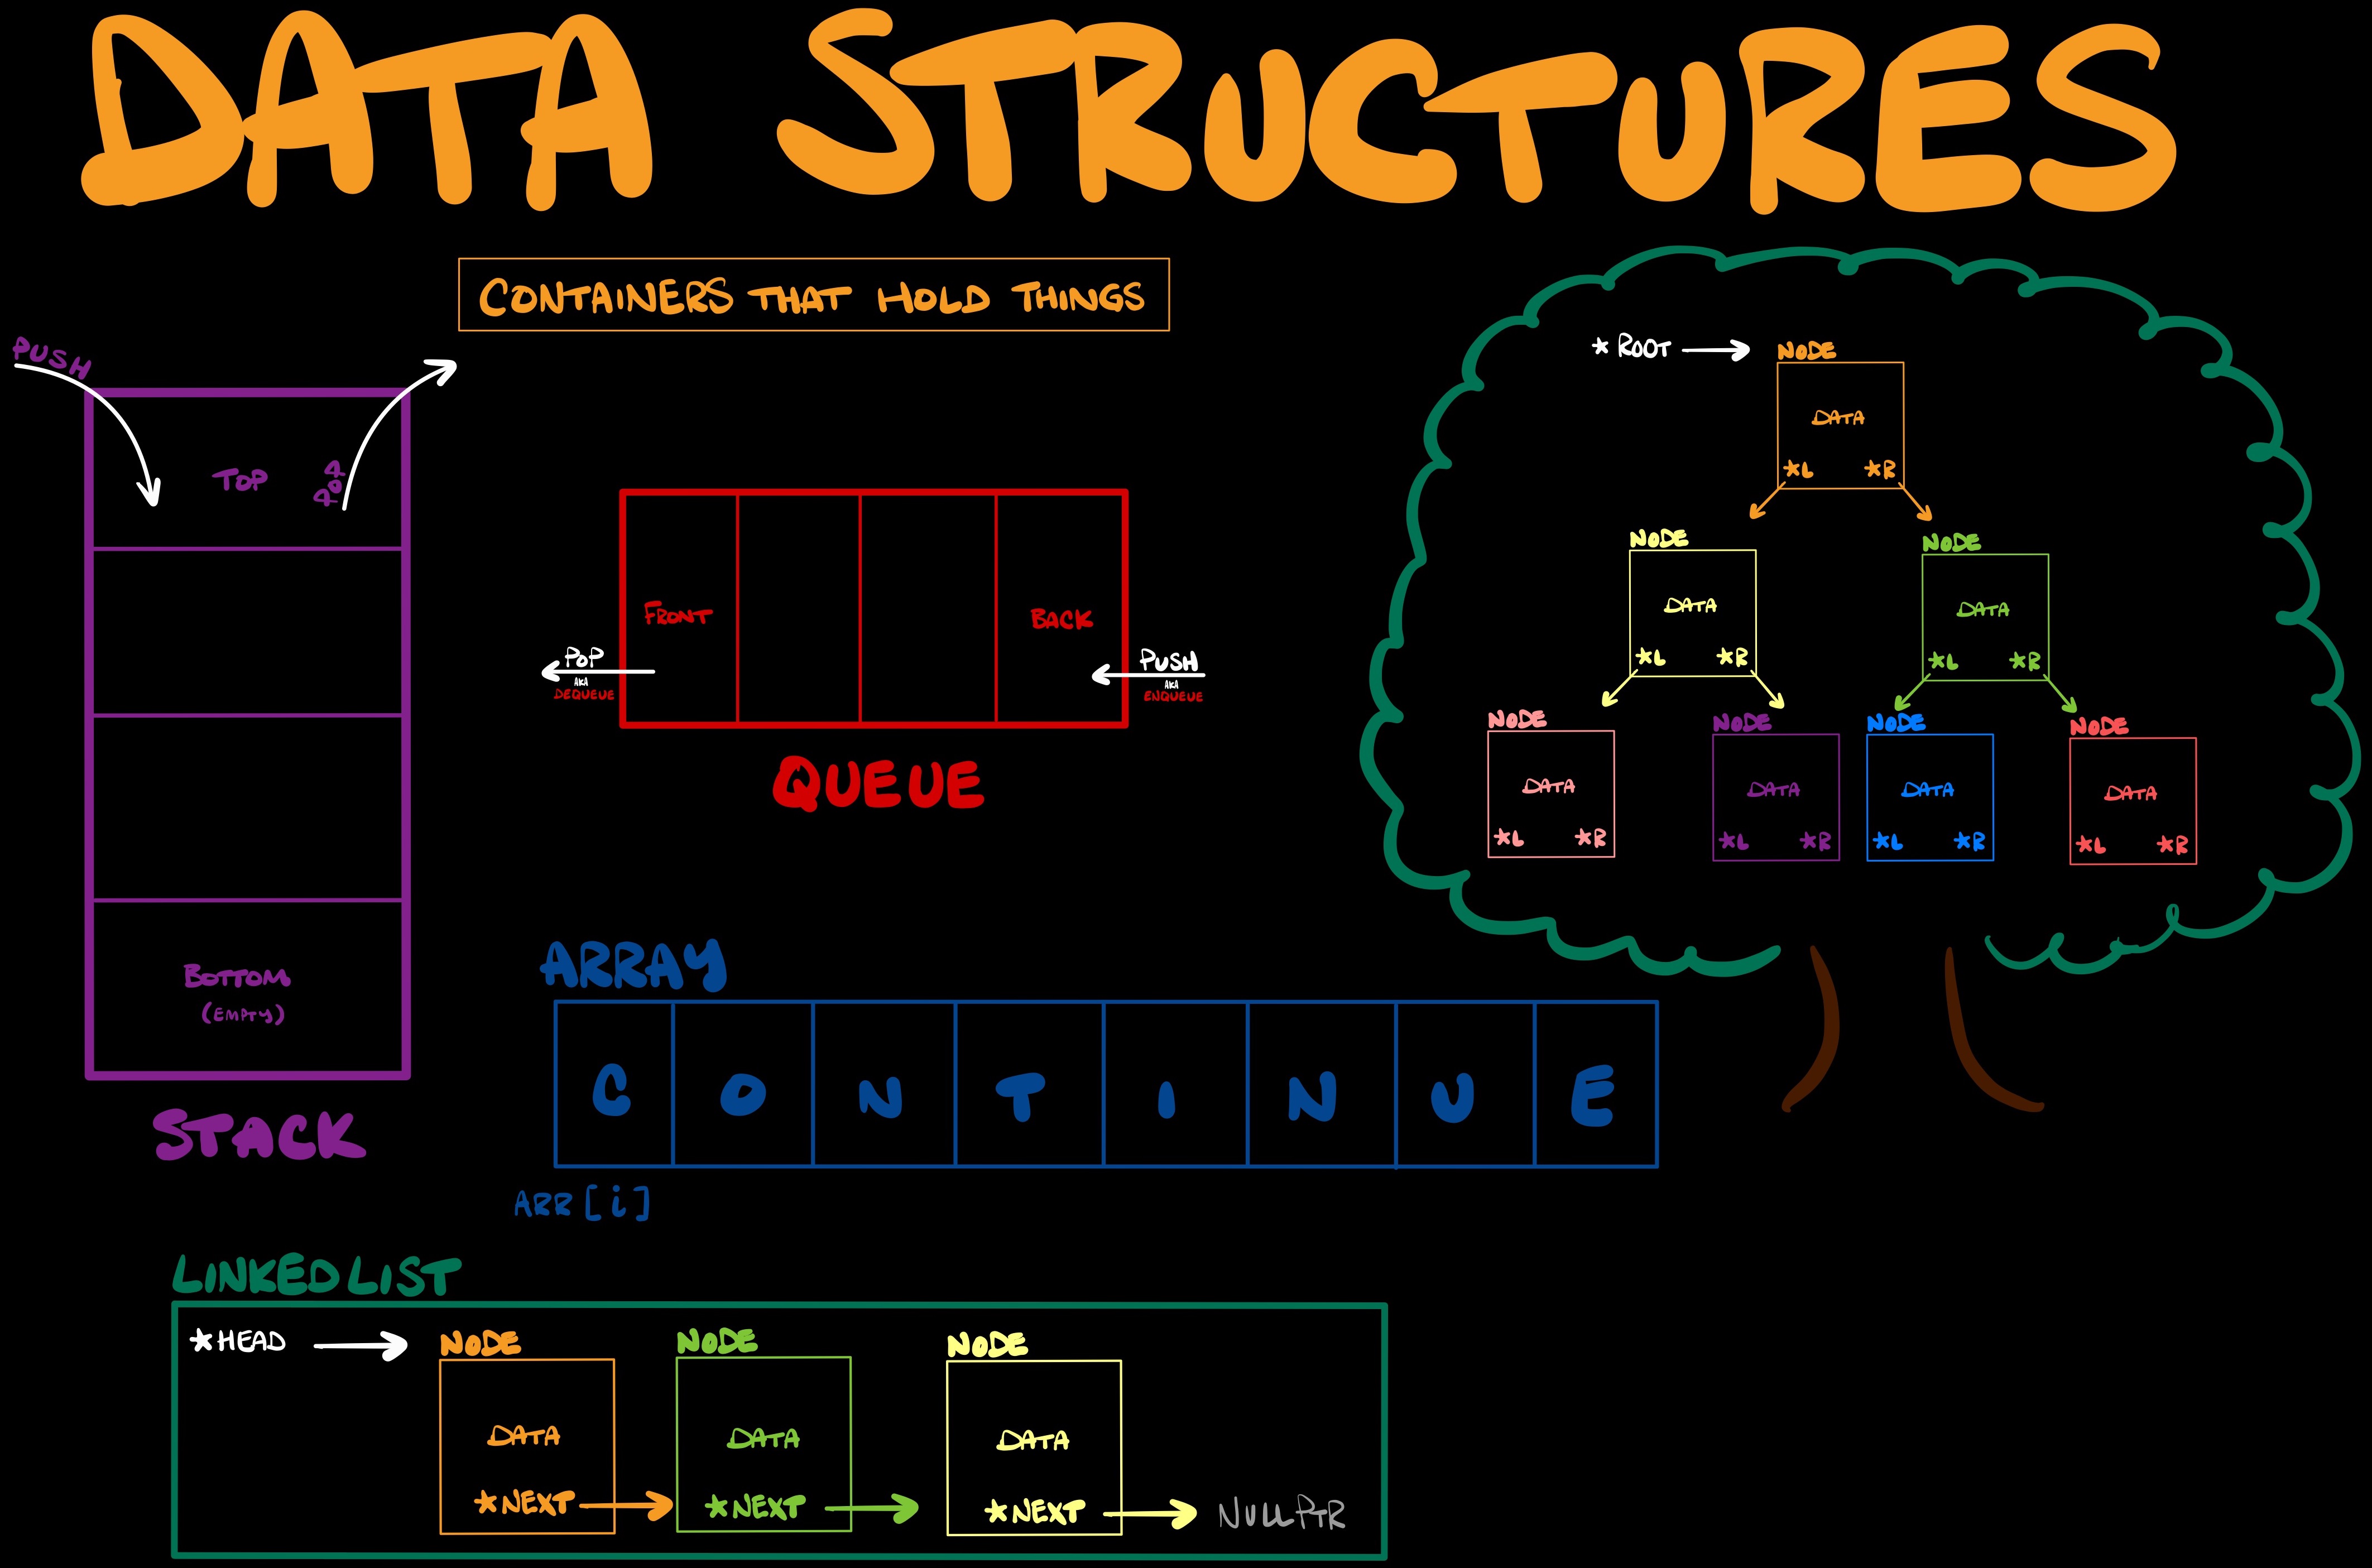 DATA STRUCTURES
CONTAINERS THAT HOLD THINGS
PUSH
TOP
POP
BOTTOM
(EMPTY)
STACK
FRONT
BACK
POP
AKA
DEQUEUE
PUSH
AKA
ENQUEUE
QUEUE
*ROOT
NODE
DATA
*L *R
NODE
DATA
*L *R
NODE
DATA
*L *R
NODE
DATA
*L *R
NODE
DATA
*L *R
NODE
DATA
*L *R
NODE
DATA
*L *R
ARRAY
C O N T I N U E
ARR[i]
LINKED LIST
*HEAD
NODE
DATA
*NEXT
NODE
DATA
*NEXT
NODE
DATA
*NEXT
NULLPTR